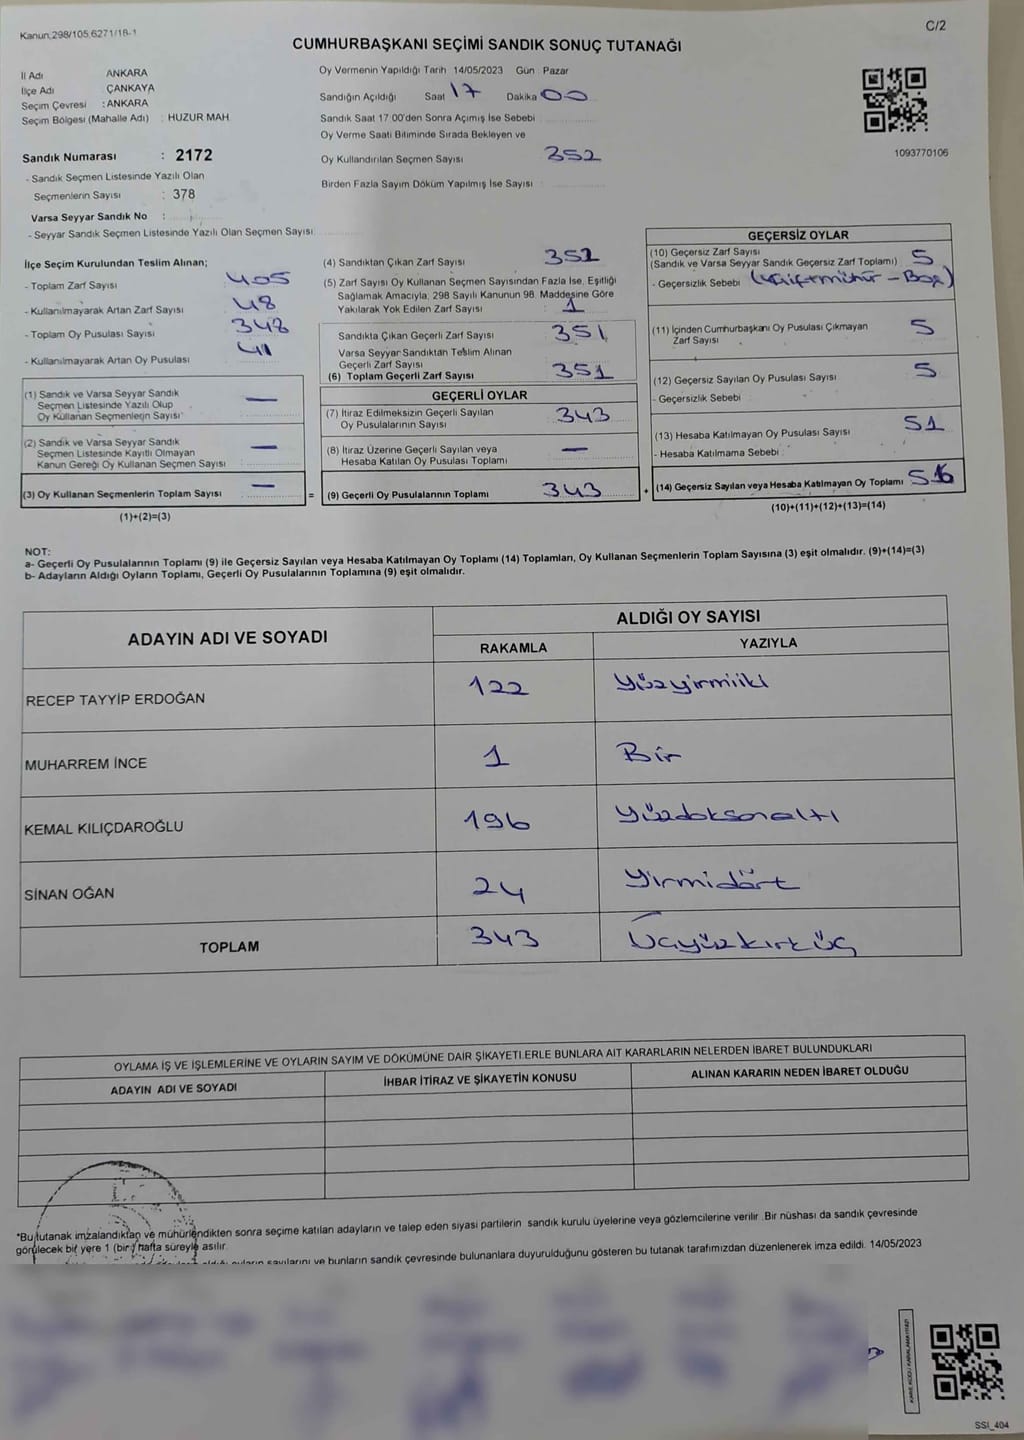 Kanun:298/105,6271/18-1
C/2
CUMHURBAŞKANI SEÇİMİ SANDIK SONUÇ TUTANAĞI
İl Adı ANKARA
İlçe Adı : ÇANKAYA
Seçim Çevresi : ANKARA
Seçim Bölgesi (Mahalle Adı) : HUZUR MAH.
Sandık Numarası : 2172
- Sandık Seçmen Listesinde Yazılı Olan
Seçmenlerin Sayısı : 378
Varsa Seyyar Sandık No :
- Seyyar Sandık Seçmen Listesinde Yazılı Olan Seçmen Sayısı:
Oy Vermenin Yapıldığı Tarih 14/05/2023 Gün Pazar
Sandığın Açıldığı Saat 17 Dakika 00
Sandık Saat 17 00'den Sonra Açımış İse Sebebi
Oy Verme Saati Bitiminde Sırada Bekleyen ve
Oy Kullandırılan Seçmen Sayısı 352
Birden Fazla Sayım Döküm Yapılmış İse Sayısı
1093770106
İlçe Seçim Kurulundan Teslim Alınan;
- Toplam Zarf Sayısı 405
- Kullanılmayarak Artan Zarf Sayısı 48
- Toplam Oy Pusulası Sayısı
- Kullanılmayarak Artan Oy Pusulası 41
(1) Sandık ve Varsa Seyyar Sandık
Seçmen Listesinde Yazılı Olup
Oy Kullanan Seçmenlerin Sayısı —
(2) Sandık ve Varsa Seyyar Sandık
Seçmen Listesinde Kayıtlı Olmayan
Kanun Gereği Oy Kullanan Seçmen Sayısı —
(3) Oy Kullanan Seçmenlerin Toplam Sayısı —
(1)+(2)=(3)
=
(4) Sandıktan Çıkan Zarf Sayısı 352
(5) Zarf Sayısı Oy Kullanan Seçmen Sayısından Fazla İse, Eşitliği
Sağlamak Amacıyla, 298 Sayılı Kanunun 98. Maddesine Göre
Yakılarak Yok Edilen Zarf Sayısı : 1
Sandıkta Çıkan Geçerli Zarf Sayısı 351
Varsa Seyyar Sandıktan Teslim Alınan
Geçerli Zarf Sayısı
(6) Toplam Geçerli Zarf Sayısı 351
GEÇERLİ OYLAR
(7) İtiraz Edilmeksizin Geçerli Sayılan
Oy Pusulalarının Sayısı 343
(8) İtiraz Üzerine Geçerli Sayılan veya
Hesaba Katılan Oy Pusulası Toplamı —
(9) Geçerli Oy Pusulalarının Toplamı 343
+
GEÇERSİZ OYLAR
(10) Geçersiz Zarf Sayısı 5
(Sandık ve Varsa Seyyar Sandık Geçersiz Zarf Toplamı)
- Geçersizlik Sebebi
(11) İçinden Cumhurbaşkanı Oy Pusulası Çıkmayan 5
Zarf Sayısı
(12) Geçersiz Sayılan Oy Pusulası Sayısı 5
- Geçersizlik Sebebi
(13) Hesaba Katılmayan Oy Pusulası Sayısı 51
- Hesaba Katılmama Sebebi
(14) Geçersiz Sayılan veya Hesaba Katılmayan Oy Toplamı
(10)+(11)+(12)+(13)=(14)
NOT:
a- Geçerli Oy Pusulalarının Toplamı (9) ile Geçersiz Sayılan veya Hesaba Katılmayan Oy Toplamı (14) Toplamları, Oy Kullanan Seçmenlerin Toplam Sayısına (3) eşit olmalıdır. (9)+(14)=(3)
b- Adayların Aldığı Oyların Toplamı, Geçerli Oy Pusulalarının Toplamına (9) eşit olmalıdır.
ADAYIN ADI VE SOYADI ALDIĞI OY SAYISI
RAKAMLA YAZIYLA
RECEP TAYYİP ERDOĞAN 122 Yüzyirmiiki
MUHARREM İNCE 1 Bir
KEMAL KILIÇDAROĞLU 196 Yüzdoksanaltı
SİNAN OĞAN 24 Yirmidört
TOPLAM 343 Üçyüzkırküç
OYLAMA İŞ VE İŞLEMLERİNE VE OYLARIN SAYIM VE DÖKÜMÜNE DAİR ŞİKAYETLERLE BUNLARA AİT KARARLARIN NELERDEN İBARET BULUNDUKLARI
ADAYIN ADI VE SOYADI İHBAR İTİRAZ VE ŞİKAYETİN KONUSU ALINAN KARARIN NEDEN İBARET OLDUĞU
*Bu tutanak imzalandıktan ve mühürlendikten sonra seçime katılan adayların ve talep eden siyasi partilerin sandık kurulu üyelerine veya gözlemcilerine verilir. Bir nüshası da sandık çevresinde
görülecek bir yere 1 (bir) hafta süreyle asılır.
aldığı oyların sayılarını ve bunların sandık çevresinde bulunanlara duyurulduğunu gösteren bu tutanak tarafımızdan düzenlenerek imza edildi. 14/05/2023
SSI_404